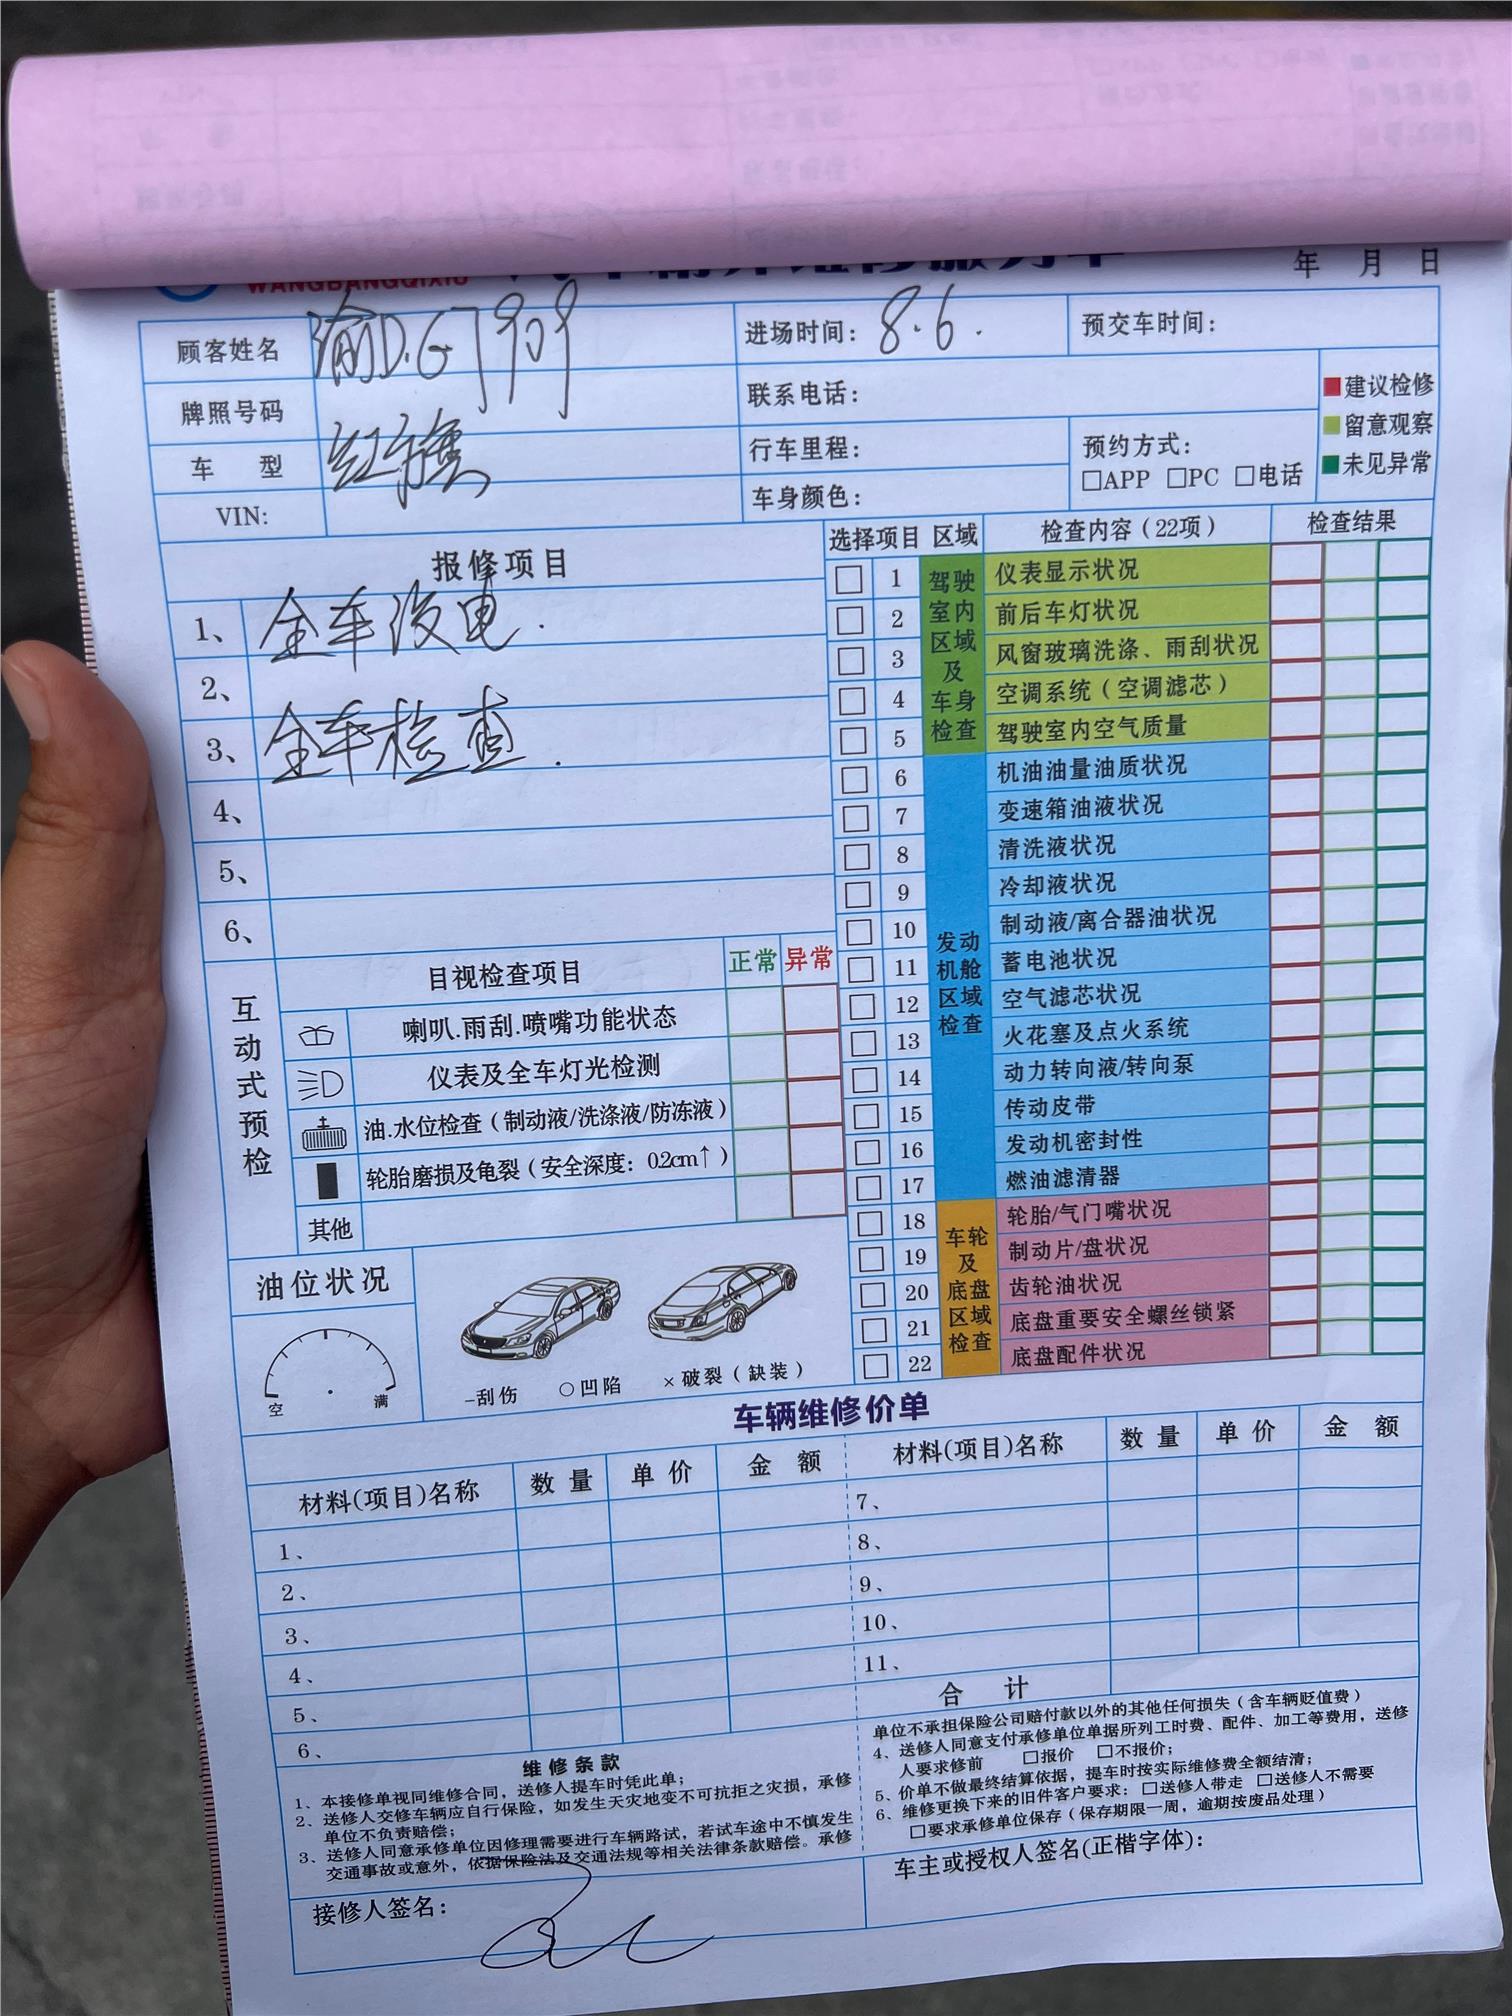 WANGBANGQIXIU
年 月 日
顾客姓名 渝D.G7909 进场时间：8.6. 预交车时间：
牌照号码 联系电话：
■建议检修
■留意观察
■未见异常
车 型 红旗 行车里程： 预约方式：
□APP □PC □电话
VIN: 车身颜色：
报修项目
1、全车没电.
2、
3、全车检查.
4、
5、
6、
选择项目 区域 检查内容（22项） 检查结果
驾驶室内区域及车身检查
□ 1 仪表显示状况
□ 2 前后车灯状况
□ 3 风窗玻璃洗涤、雨刮状况
□ 4 空调系统（空调滤芯）
□ 5 驾驶室内空气质量
发动机舱区域检查
□ 6 机油油量油质状况
□ 7 变速箱油液状况
□ 8 清洗液状况
□ 9 冷却液状况
□ 10 制动液/离合器油状况
□ 11 蓄电池状况
□ 12 空气滤芯状况
□ 13 火花塞及点火系统
□ 14 动力转向液/转向泵
□ 15 传动皮带
□ 16 发动机密封性
□ 17 燃油滤清器
车轮及底盘区域检查
□ 18 轮胎/气门嘴状况
□ 19 制动片/盘状况
□ 20 齿轮油状况
□ 21 底盘重要安全螺丝锁紧
□ 22 底盘配件状况
互动式预检
目视检查项目 正常 异常
喇叭.雨刮.喷嘴功能状态
仪表及全车灯光检测
油.水位检查（制动液/洗涤液/防冻液）
轮胎磨损及龟裂（安全深度：0.2cm↑）
其他
油位状况
空 满
-刮伤 ○凹陷 ×破裂（缺装）
车辆维修价单
材料(项目)名称 数 量 单 价 金 额 材料(项目)名称 数 量 单 价 金 额
1、
2、
3、
4、
5、
6、
7、
8、
9、
10、
11、
合 计
维修条款
1、本接修单视同维修合同，送修人提车时凭此单；
2、送修人交修车辆应自行保险，如发生天灾地变不可抗拒之灾损，承修
单位不负责赔偿；
3、送修人同意承修单位因修理需要进行车辆路试，若试车途中不慎发生
交通事故或意外，依据保险法及交通法规等相关法律条款赔偿。承修
单位不承担保险公司赔付款以外的其他任何损失（含车辆贬值费）
4、送修人同意支付承修单位单据所列工时费、配件、加工等费用，送修
人要求修前 □报价 □不报价；
5、价单不做最终结算依据，提车时按实际维修费全额结清；
6、维修更换下来的旧件客户要求：□送修人带走 □送修人不需要
□要求承修单位保存（保存期限一周，逾期按废品处理）
接修人签名：
车主或授权人签名(正楷字体)：